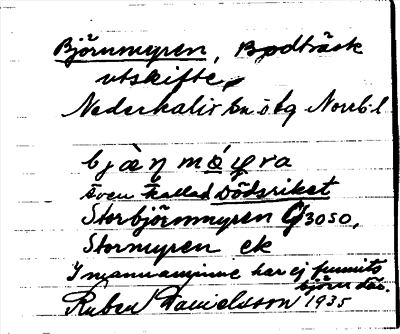 Björnmyren, Bodträsk
utskifte,
Nederkalix tn o tg Norrb. l
bjὰηmό̱ψra
Även kallad Dödsriket
Storbjörnmyren G 3050,
Stormyren ek
I mannaminne har ej funnits
björn där.
Ruben Danielsson 1935